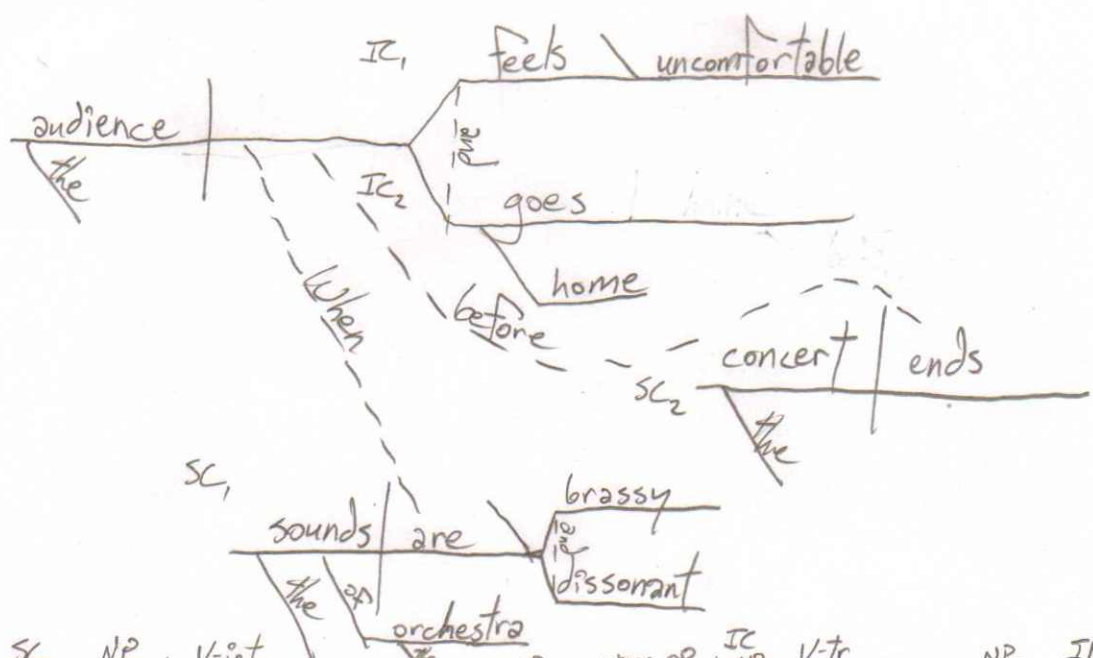 IC₁ feels uncomfortable
audience
the
and
IC₂ goes
home
When
before
concert ends
SC₂
the
SC₁
brassy
sounds are
and
dissonant
the of
orchestra
the
SC NP V-int IC NP V-tr NP